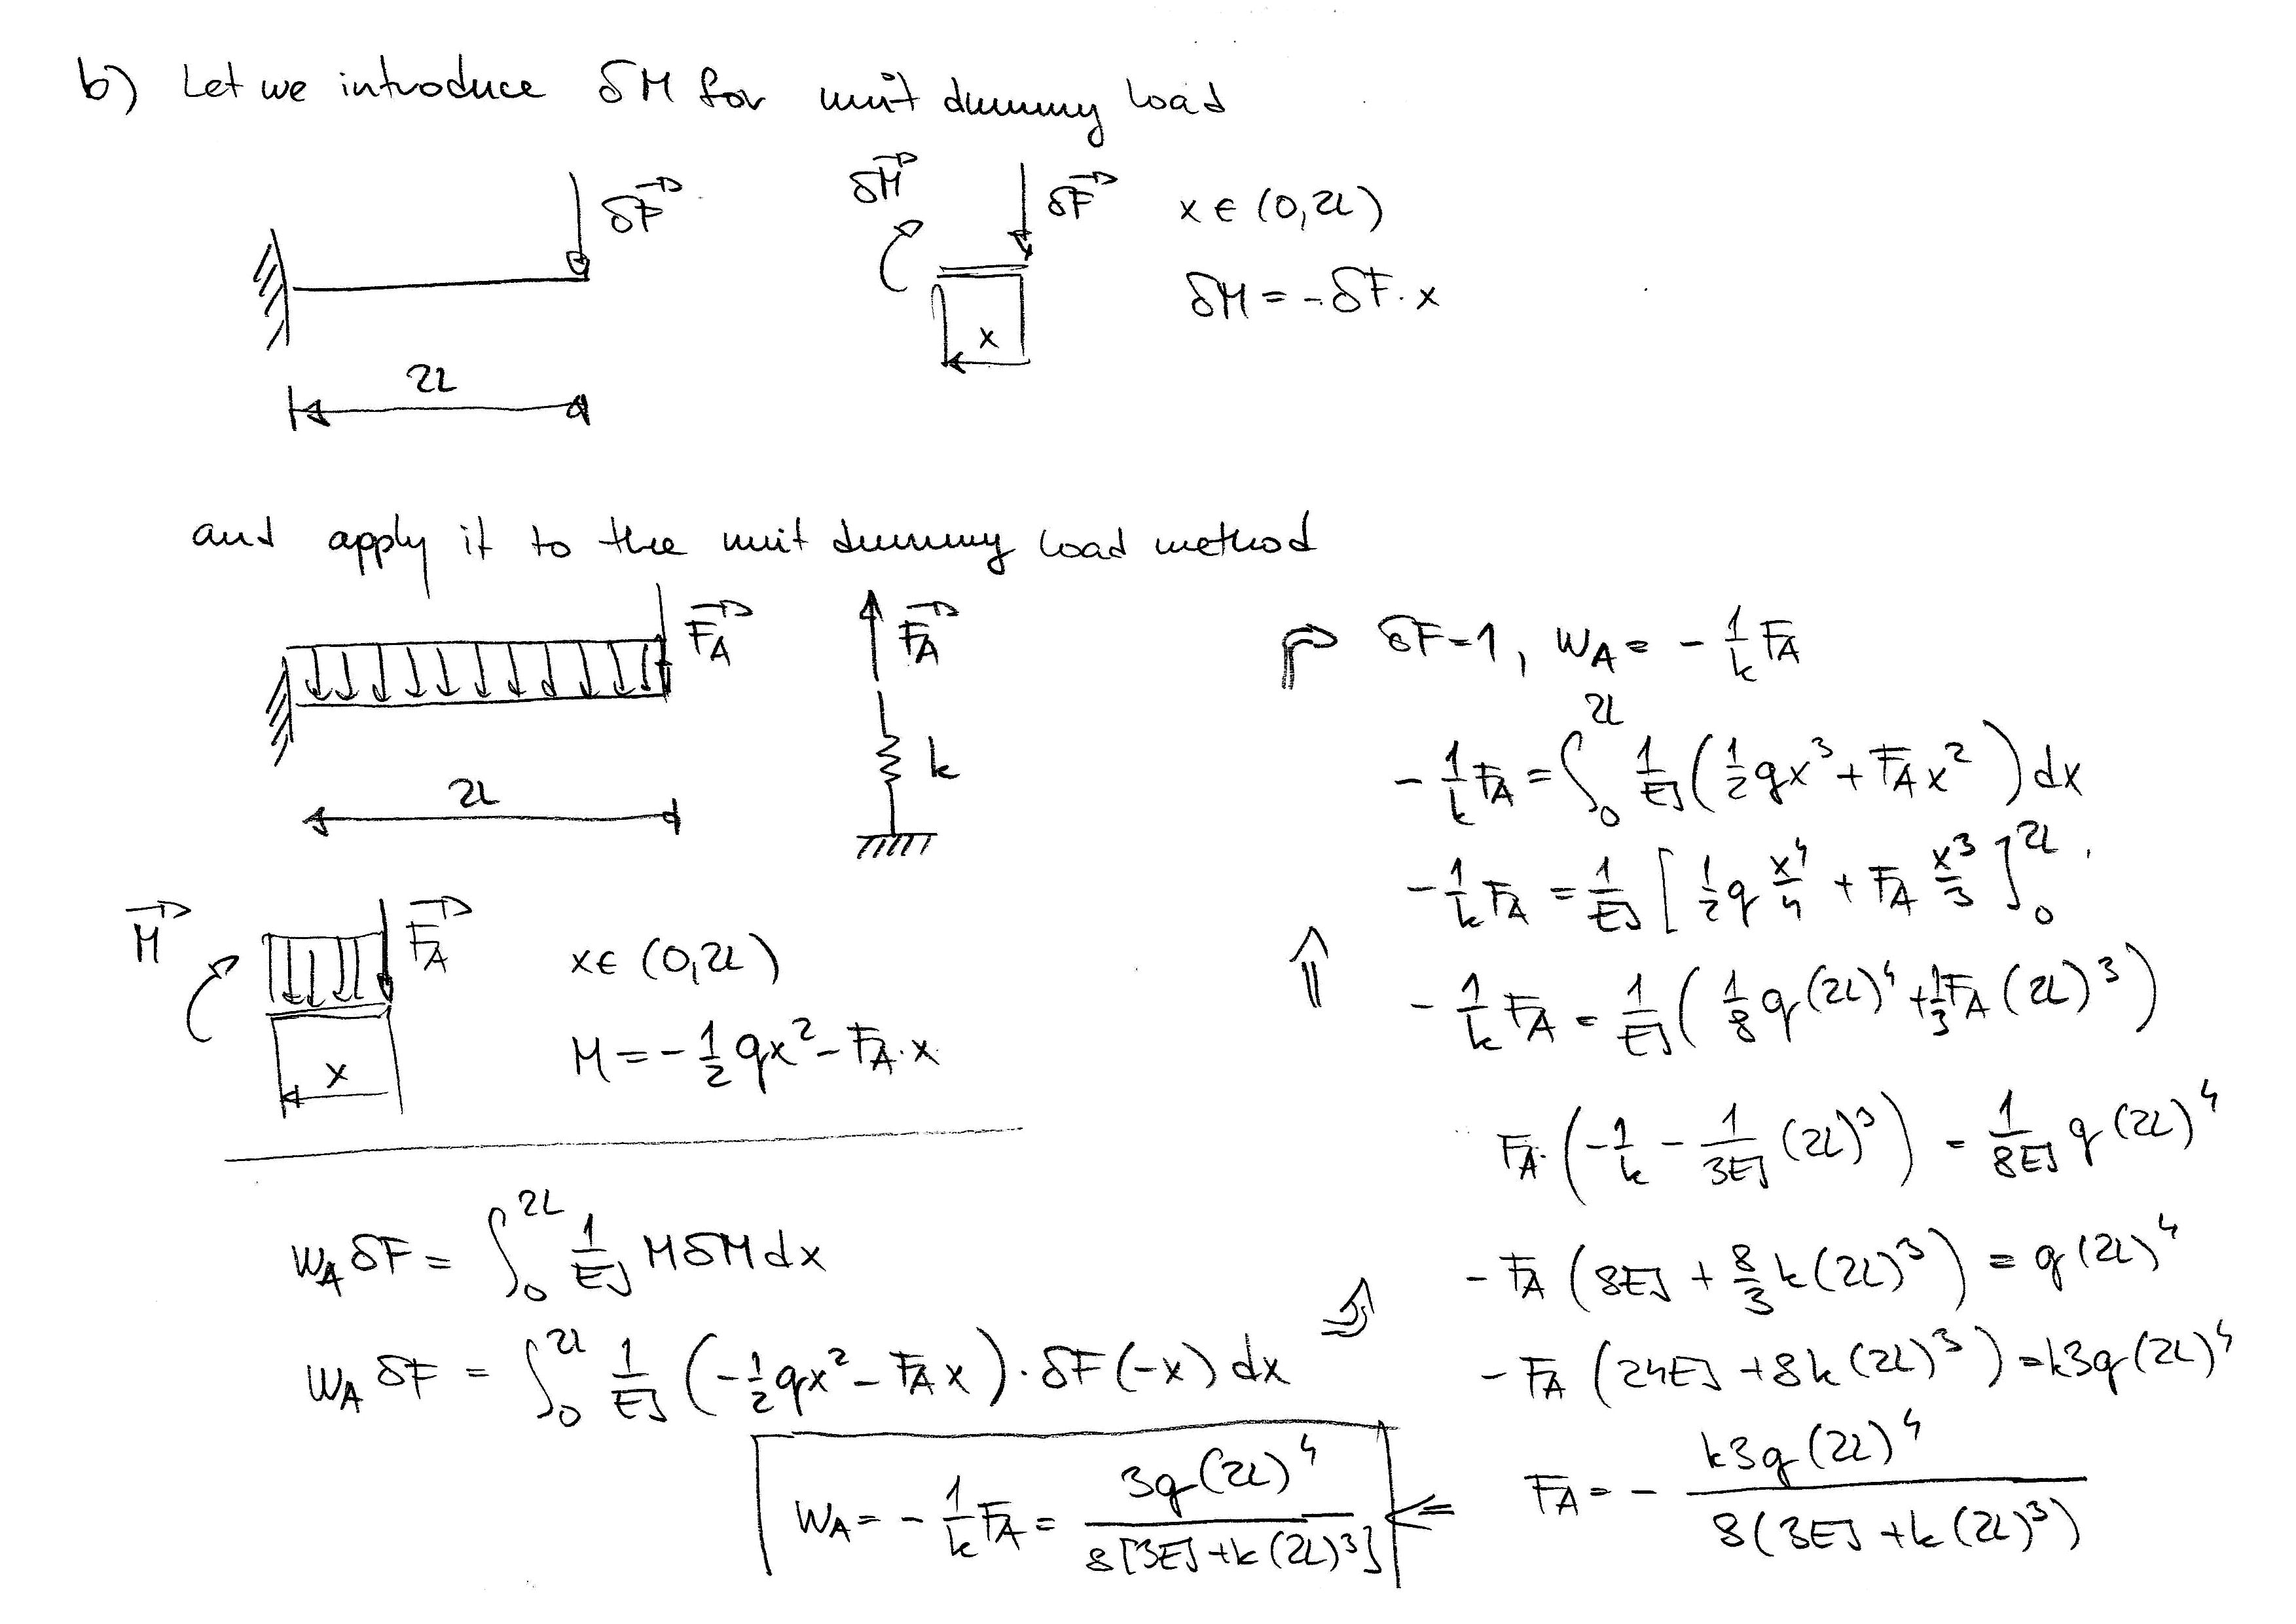 b) Let we introduce δM for unit dummy load
δF
2L
δM
δF
x
x ∈ (0,2L)
δM = -δF·x
and apply it to the unit dummy load method
F_A
2L
F_A
k
M
F_A
x
x ∈ (0,2L)
M = -1/2 qx² - F_A·x
w_A δF = ∫₀^2L 1/EJ M δM dx
w_A δF = ∫₀^2L 1/EJ (-1/2 qx² - F_A x)·δF(-x) dx
⇒ δF=1, w_A = -1/k F_A
-1/k F_A = ∫₀^2L 1/EJ (1/2 qx³ + F_A x²) dx
-1/k F_A = 1/EJ [1/2 q x⁴/4 + F_A x³/3]₀^2L
-1/k F_A = 1/EJ (1/8 q(2L)⁴ + 1/3 F_A (2L)³)
F_A·(-1/k - 1/3EJ (2L)³) = 1/8EJ q(2L)⁴
-F_A (8EJ + 8/3 k(2L)³) = q(2L)⁴
-F_A (24EJ + 8k(2L)³) = k3q(2L)⁴
F_A = - k3q(2L)⁴ / 8(3EJ + k(2L)³)
w_A = -1/k F_A = 3q(2L)⁴ / 8[3EJ + k(2L)³] ⇐